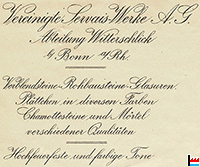 Vereinigte Servais-Werke A.G.
Abteilung Witterschlick
b/ Bonn a/Rh.
Verblendsteine-Rohbausteine-Glasuren.
Plättchen in diversen Farben
Chamottesteine und Mörtel
verschiedener Qualitäten
Hochfeuerfeste und farbige Tone